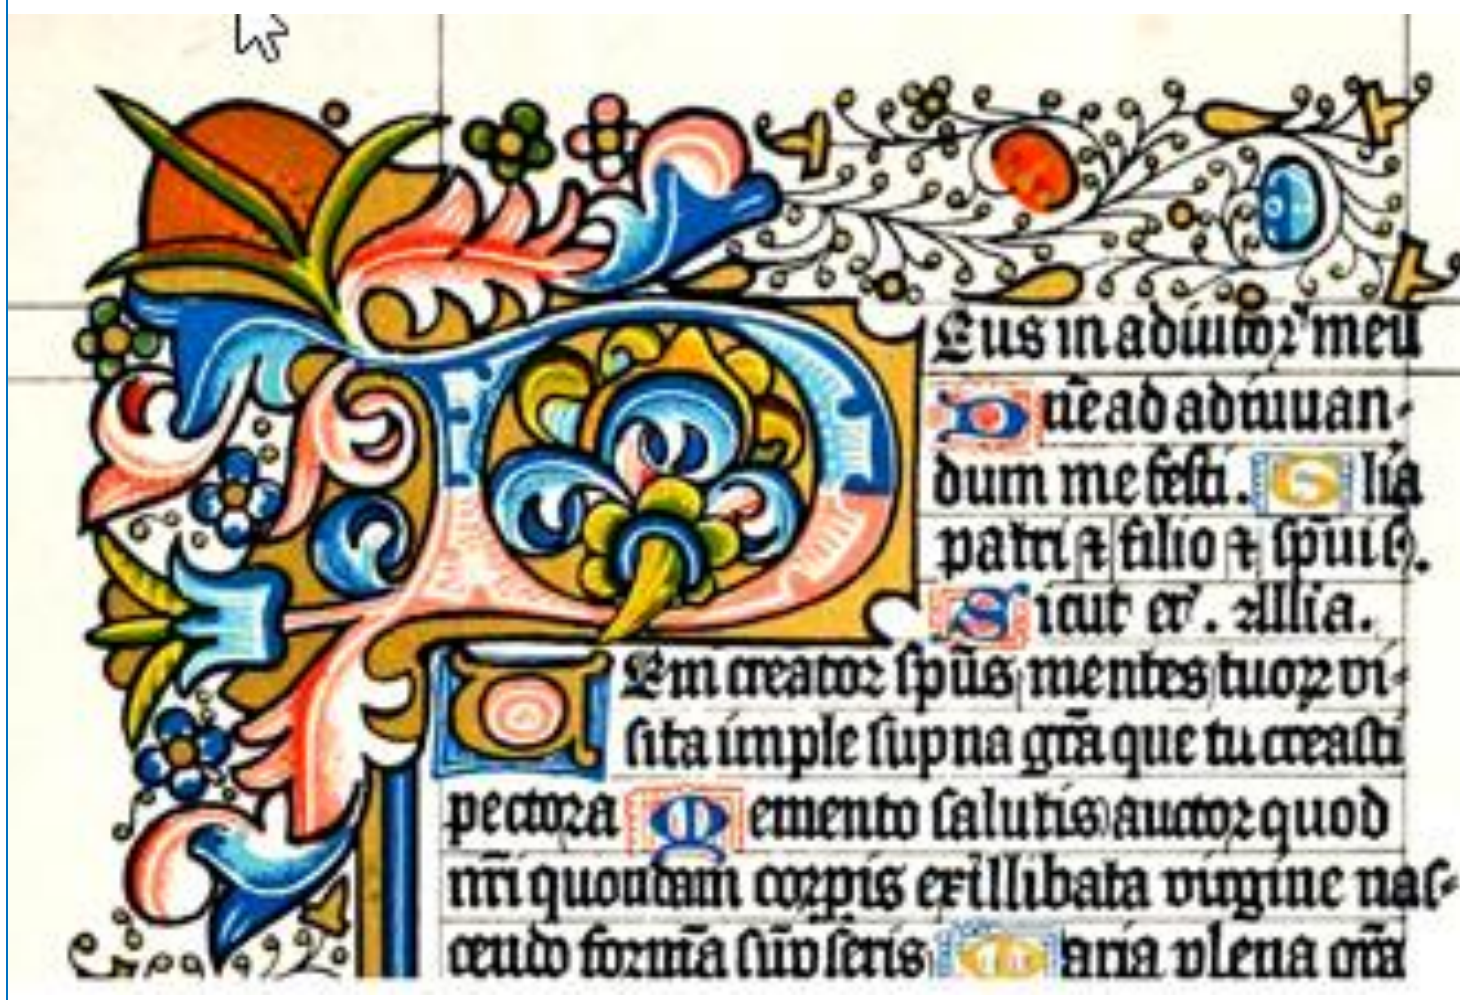 DEus in adiutoꝝ meū
Dñe ad adiuuan-
dum me festi. Glia
patri ⁊ filio ⁊ sp̄ui s̄.
Sicut er̄. allia.
UEni creatoꝛ sp̄us mentes tuoꝝ vi-
sita imple supna gr̄a que tu creasti
pectoꝛa Memento salutis auctoꝛ quod
nr̄i quondam coꝛpis ex illibata virgine nas-
cendo foꝛmā sūpseris Maria plena gr̄a